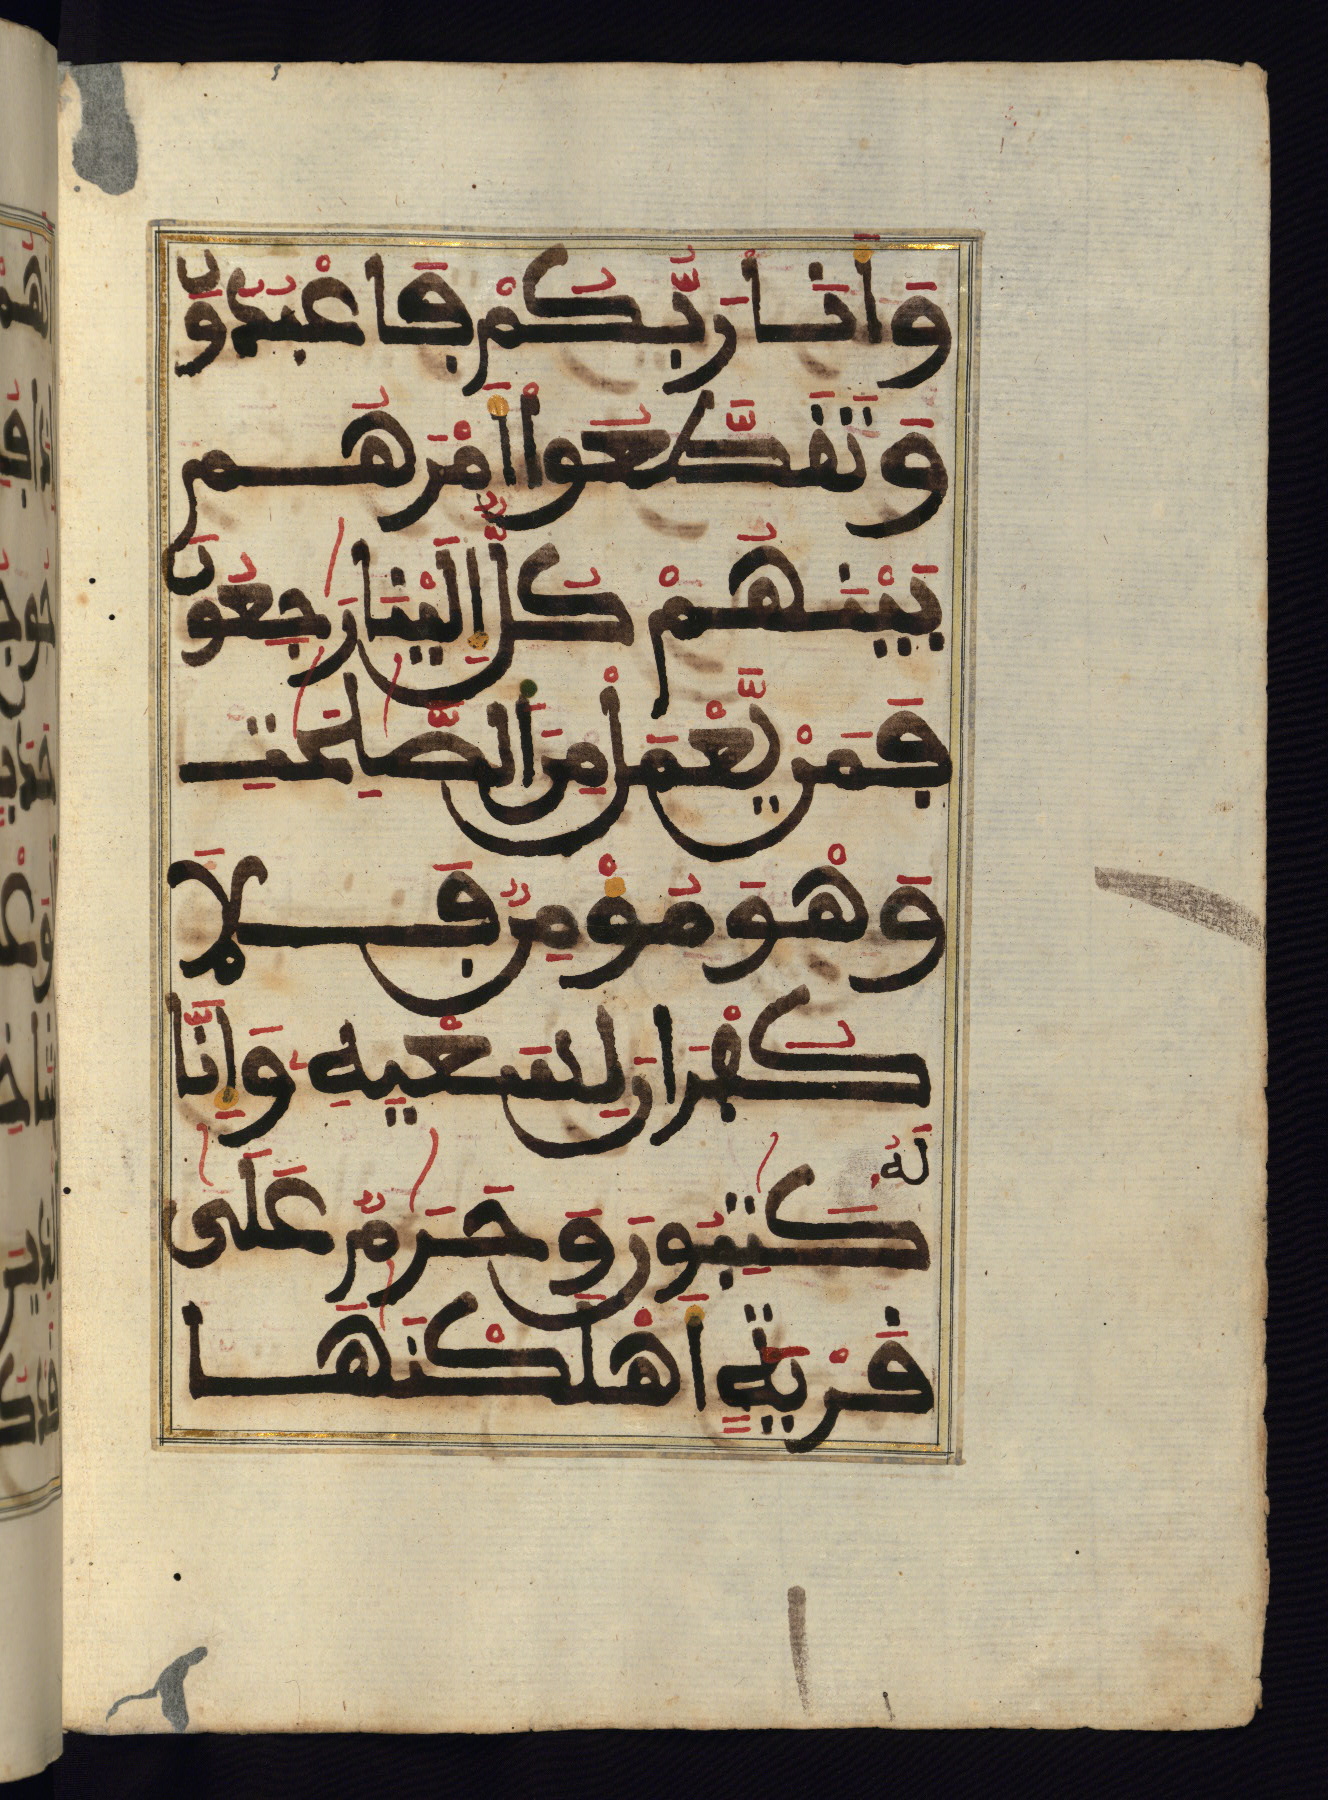 وَأَنَا رَبُّكُمْ فَاعْبُدُونِ
وَتَقَطَّعُوا أَمْرَهُم
بَيْنَهُمْ كُلٌّ إِلَيْنَا رَٰجِعُونَ
فَمَنْ يَّعْمَلْ مِنَ ٱلصَّٰلِحَٰتِ
وَهْوَ مُؤْمِنٌ فَلَا
كُفْرَانَ لِسَعْيِهِ وَإِنَّا
لَهُ
كَٰتِبُونَ وَحَرَٰمٌ عَلَىٰ
قَرْيَةٍ أَهْلَكْنَٰهَا